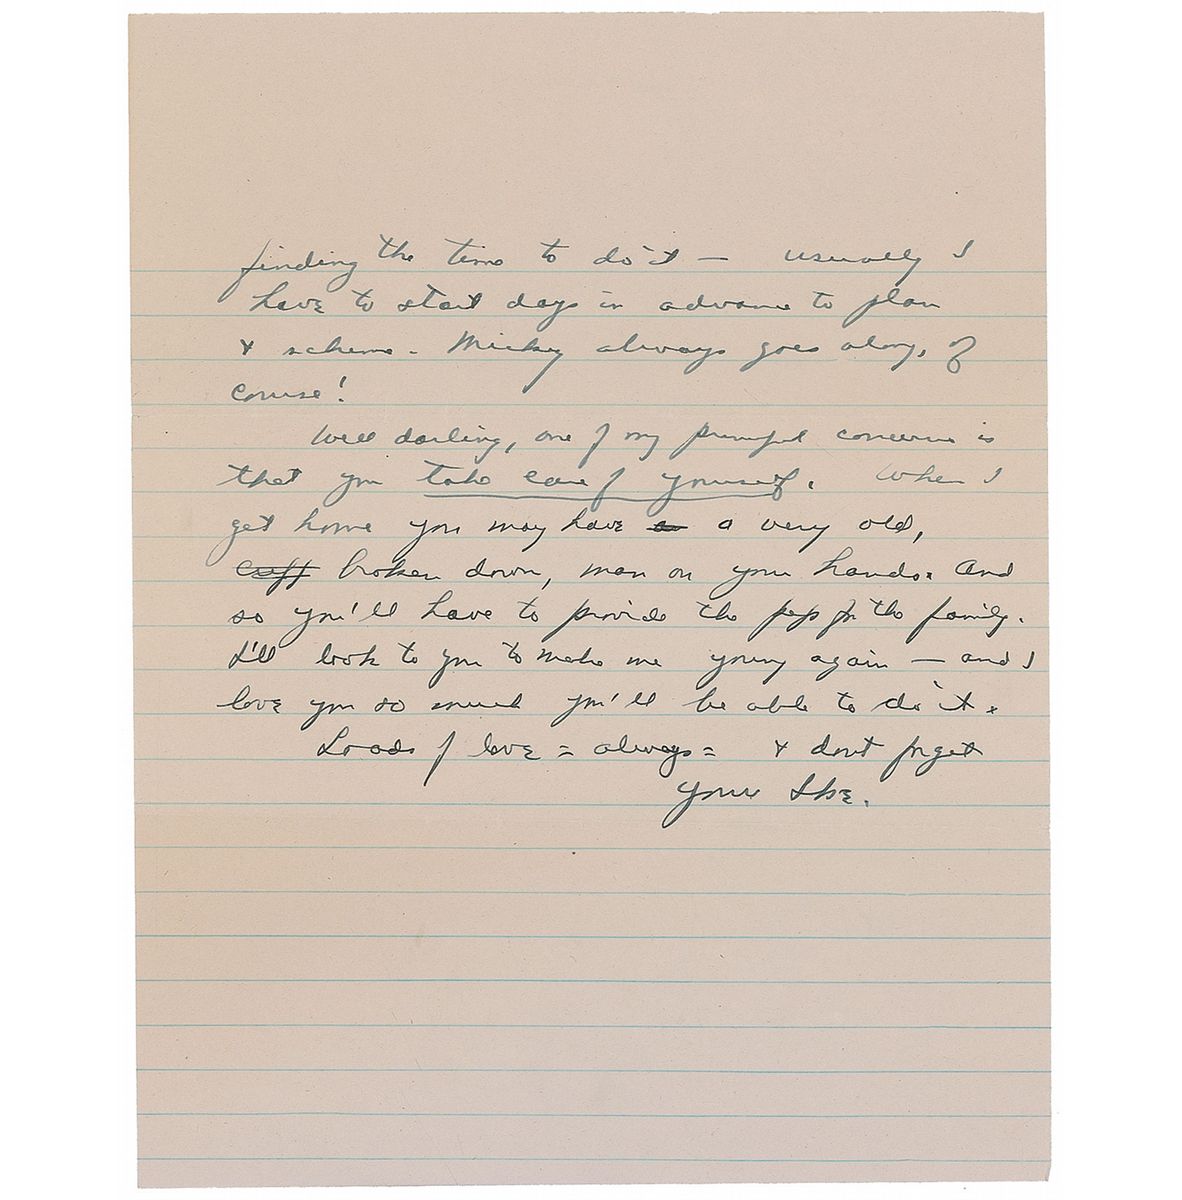 finding the time to do it — usually I
have to start days in advance to plan
& scheme. Mickey always goes along, of
course!
Well darling, one of my principal concerns is
that you take care of yourself. When I
get home you may have a a very old,
broken down, man on your hands. And
so you'll have to provide the pep for the family.
I'll look to you to make me young again — and I
love you so much you'll be able to do it.
Loads of love = always = & don't forget
Your Ike.